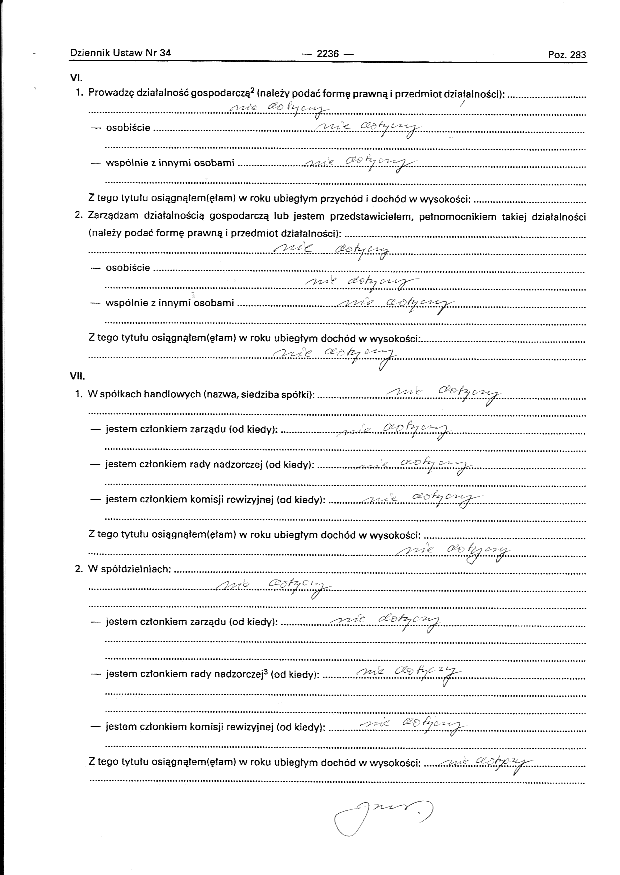 Dziennik Ustaw Nr 34 — 2236 — Poz. 283
VI.
1. Prowadzę działalność gospodarczą² (należy podać formę prawną i przedmiot działalności):
nie dotyczy
— osobiście nie dotyczy
— wspólnie z innymi osobami nie dotyczy
Z tego tytułu osiągnąłem(ęłam) w roku ubiegłym przychód i dochód w wysokości:
2. Zarządzam działalnością gospodarczą lub jestem przedstawicielem, pełnomocnikiem takiej działalności
(należy podać formę prawną i przedmiot działalności):
nie dotyczy
— osobiście
nie dotyczy
— wspólnie z innymi osobami nie dotyczy
Z tego tytułu osiągnąłem(ęłam) w roku ubiegłym dochód w wysokości:
nie dotyczy
VII.
1. W spółkach handlowych (nazwa, siedziba spółki): nie dotyczy
— jestem członkiem zarządu (od kiedy): nie dotyczy
— jestem członkiem rady nadzorczej (od kiedy): nie dotyczy
— jestem członkiem komisji rewizyjnej (od kiedy): nie dotyczy
Z tego tytułu osiągnąłem(ęłam) w roku ubiegłym dochód w wysokości:
nie dotyczy
2. W spółdzielniach:
nie dotyczy
— jestem członkiem zarządu (od kiedy): nie dotyczy
— jestem członkiem rady nadzorczej³ (od kiedy): nie dotyczy
— jestem członkiem komisji rewizyjnej (od kiedy): nie dotyczy
Z tego tytułu osiągnąłem(ęłam) w roku ubiegłym dochód w wysokości: nie dotyczy